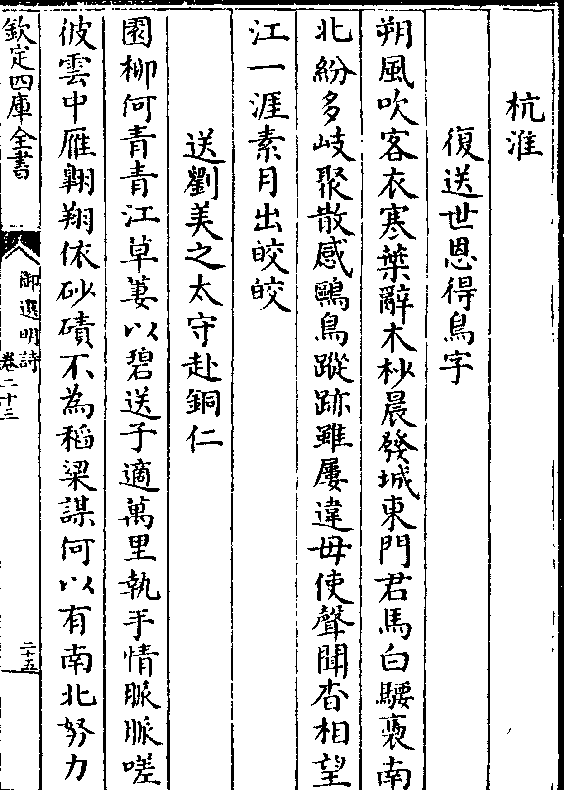 杭淮
復送世恩得鳥字
朔風吹客衣寒葉辭木杪晨發城東門君馬白騕褭南
北紛多岐聚散感鷗鳥蹤跡雖屢違毋使聲聞杳相望
江一涯素月出皎皎
送劉美之太守赴銅仁
園柳何青青江草萋以碧送子適萬里執手情脈脈嗟
彼雲中雁翺翔依砂磧不為稻粱謀何以有南北努力
欽定四庫全書
御選明詩
卷二十三
二十五